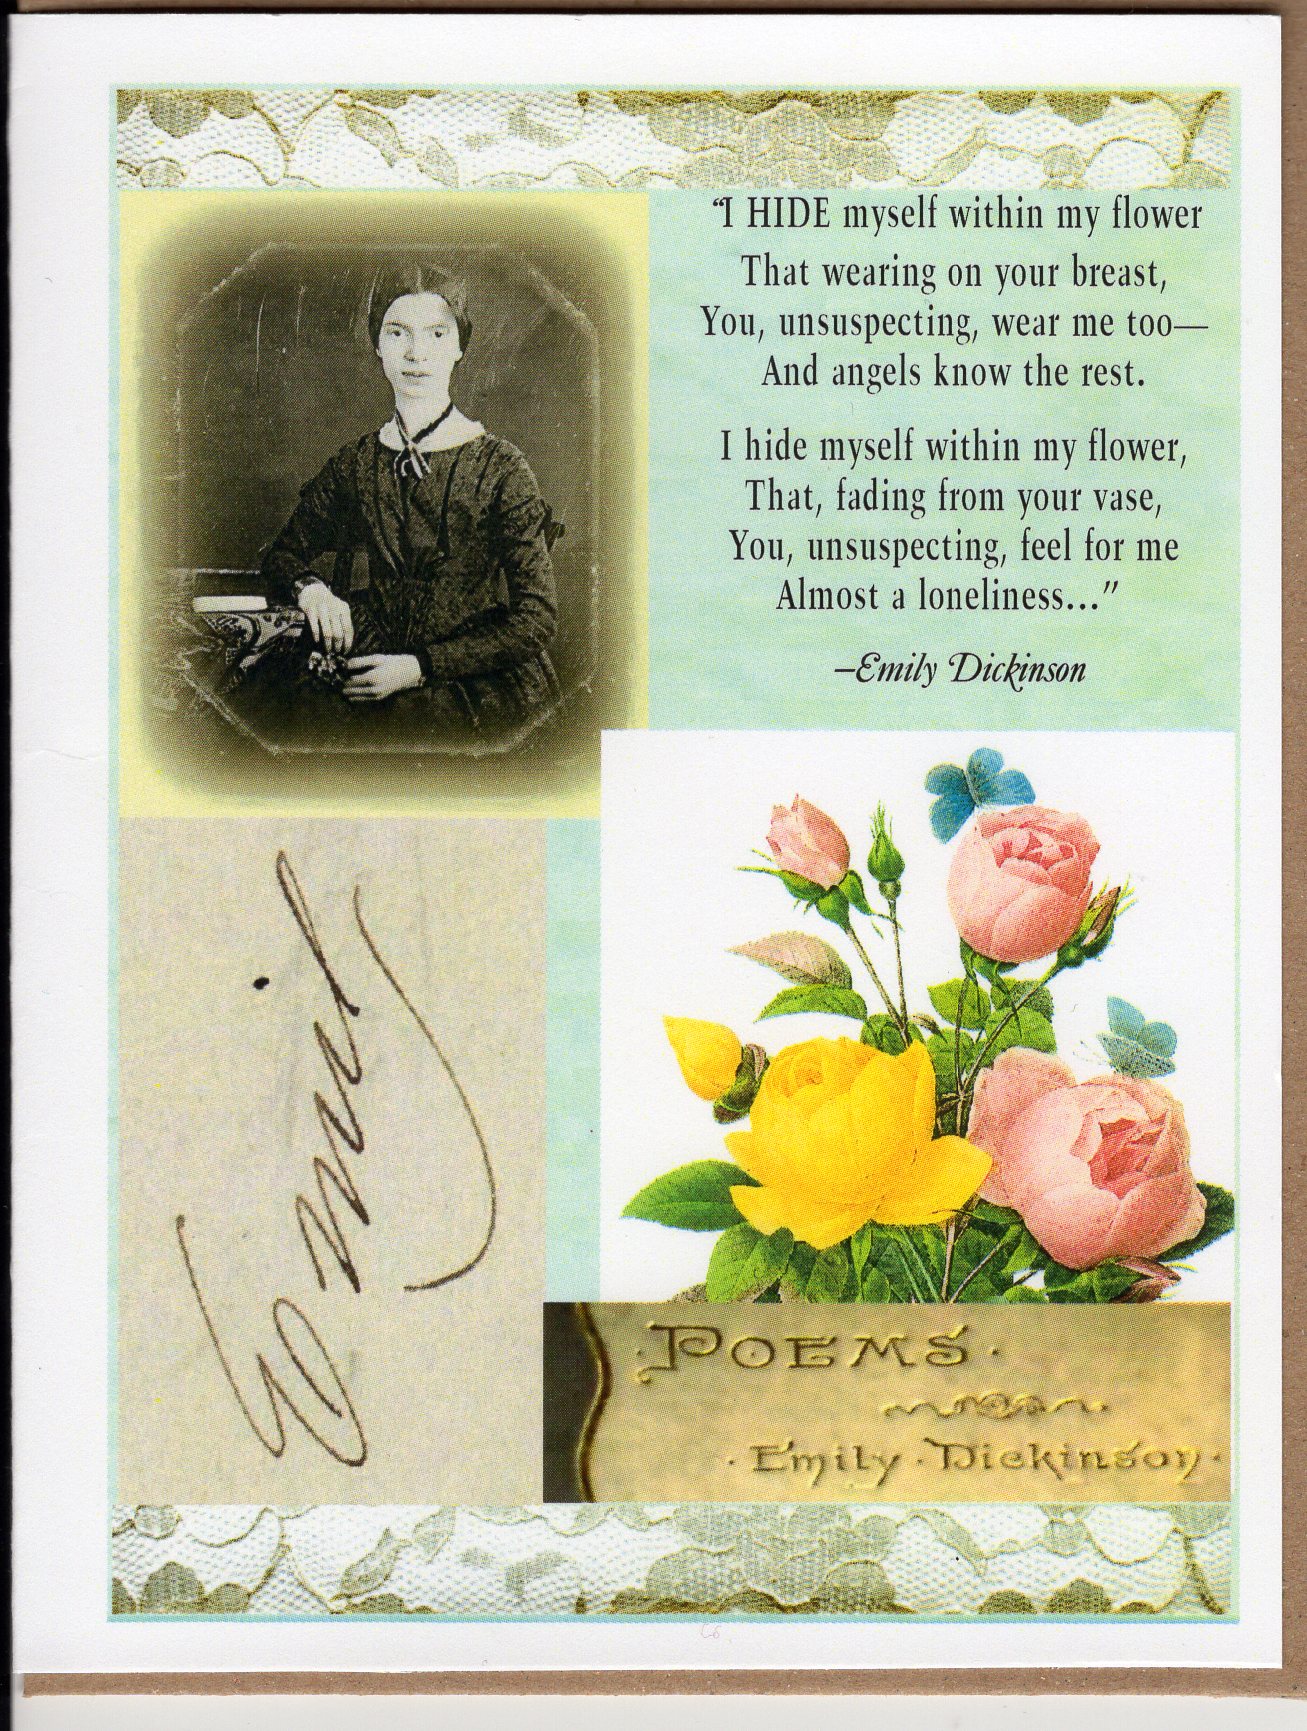 “I HIDE myself within my flower
That wearing on your breast,
You, unsuspecting, wear me too—
And angels know the rest.
I hide myself within my flower,
That, fading from your vase,
You, unsuspecting, feel for me
Almost a loneliness...”
–Emily Dickinson
Emily
·POEMS·
·Emily·Dickinson·